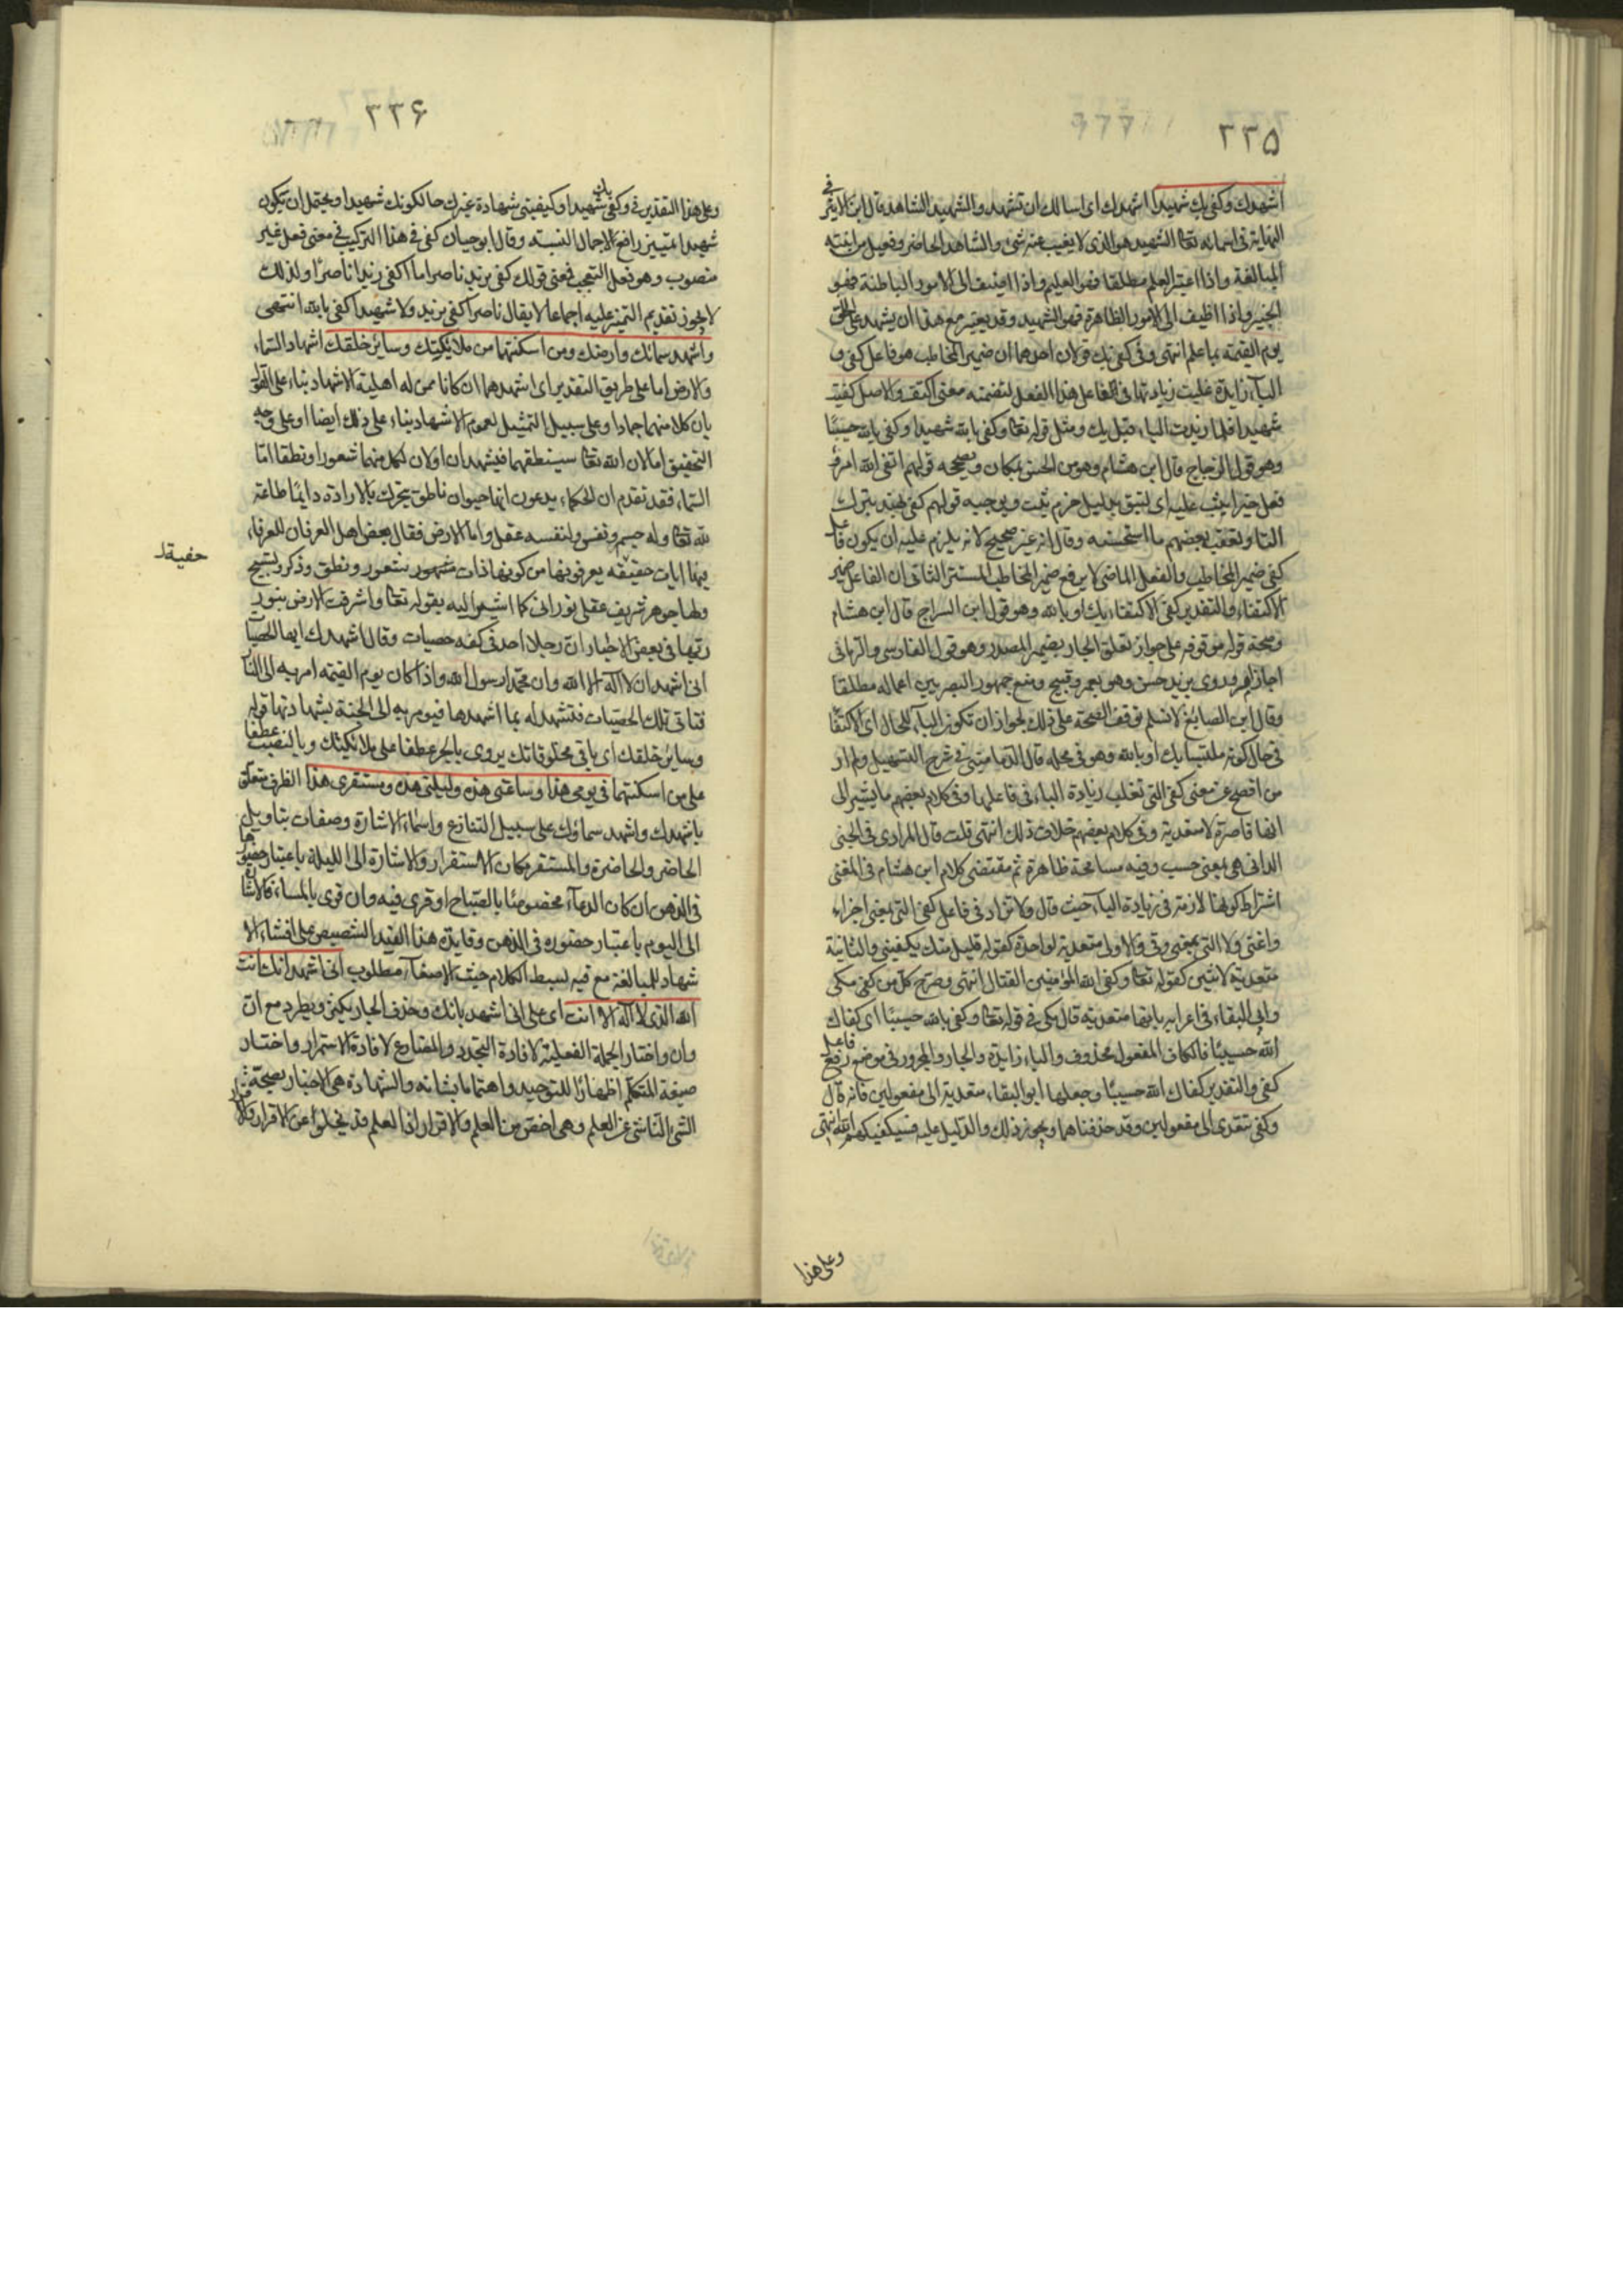 ٢٢٥
اشهدك وكفى بك شهيدا اشهدك اى اسالك ان تشهد والشهيد الشاهد قال ابن الاثير فى
النهاية فى اسمائه تعا الشهيد هو الذى لا يغيب عنه شئ والشاهد الحاضر وفعيل من ابنية
المبالغة واذا اعتبر العلم مطلقا فهو العليم واذا اضيف الى الامور الباطنة فهو
الخبير واذا اظيف الى الامور الظاهرة فهو الشهيد وقد يعتبر مع هذا ان يشهد على الخلق
يوم القيمة بما علم انتهى وفى كفى بك قولان احدهما ان ضمير المخاطب هو فاعل كفى و
الباء زايدة غلبت زيادتها فى الفاعل هذا الفعل لتضمنه معنى اكتف والاصل كفيت
شهيدا فلما زيدت الباء قيل بك ومثل قوله تعا وكفى بالله شهيدا وكفى بالله حسيبًا
وهو قول الزجاج قال ابن هشام وهو من الحسن بمكان ويصححه قولهم اتقى الله امرؤ
فعل خيرا يثب عليه اى ليتق بدليل جزم يثب ويوجبه قولهم كفى بهند بترك
التا وتعقب بعضهم ما استحسنه وقال انه غير صحيح لانه يلزم عليه ان يكون فاعل
كفى ضمير المخاطب والفعل الماضى لا يرفع ضمير المخاطب المستتر الثانى ان الفاعل ضمير
الاكتفاء والتقدير كفى الاكتفاء بك او بالله وهو قول ابن السراج قال ابن هشام
وصحة قوله موقوفه على جواز تعلق الجار بضمير المصدر وهو قول الفارسى والرمانى
اجازا مرورى بزيد حسن وهو بعمرو قبيح ومنع جمهور البصريين اعماله مطلقا
وقال ابن الصايغ لا نسلم توقف الصحة على ذلك لجواز ان تكون الباء للحال اى الاكتفا
فى حال كونه ملتبسا بك او بالله وهو فى محله قال الدمامينى فى شرح التسهيل ولم ار
من افصح عن معنى كفى التى تغلب زيادة الباء فى فاعلها وفى كلام بعضهم ما يشير الى
انها قاصرة لا متعدية وفى كلام بعضهم خلاف ذلك انتهى قلت قال المرادى فى الجنى
الدانى هى بمعنى حسب وفيه مسامحة ظاهرة ثم مقتضى كلام ابن هشام فى المغنى
اشتراط كونها لازمة فى زيادة الباء حيث قال ولا تزاد فى فاعل كفى التى بمعنى اجزاء
واغنى ولا التى بمعنى وقى والاولى متعدية لواحد كقوله قليل منك يكفينى والثانية
متعدية لاثنين كقوله تعا وكفى الله المؤمنين القتال انتهى وصرح كل من كفى مكى
وابى البقاء فى اعرابه بانها متعدية قال مكى فى قوله تعا وكفى بالله حسيبًا اى كفاك
الله حسيبًا فالكاف المفعول محذوف والباء زايدة والجار والمجرور فى موضع رفع فاعل
كفى والتقدير كفاك الله حسيبًا وجعلها ابو البقاء متعدية الى مفعولين فانه قال
وكفى تتعدى الى مفعولين وقد حذفناهما ويجوز ذلك والدليل عليه فسيكفيكهم الله انتهى
وعلى هذا
٢٢۶
وعلى هذا التقدير فى وكفى بك شهيدا وكيفيتى شهادة غيرك حالكونك شهيدا ويحتمل ان يكون
شهيدا تمييز رافع لاجمال النسبه وقال ابو حيان كفى فى هذا التركيب فى معنى فعل غير
منصوب وهو فعل التعجب فمعنى قولك كفى بزيد ناصرا ما اكفى زيدا ناصرًا ولذلك
لا يجوز تقديم التميز عليه اجماعا لا يقال ناصرا كفى بزيد ولا شهيدا كفى بالله انتهى
واشهد سمائك وارضك ومن اسكنتها من ملائكتك وسائر خلقك اشهاد السماء
والارض اما على طريق التقدير اى اشهدهما ان كانا ممن له اهلية الاشهاد بناء على القول
بان كلا منهما جمادا وعلى سبيل التمثيل لعموم الاشهاد بناء على ذلك ايضا او على وجه
التحقيق اما لان الله تعا سينطقهما فيشهدان او لان لكل منهما شعورا ونطقا امّا
السماء فقد تقدم ان الحكماء يدعون انها حيوان ناطق يتحرك بالارادة دايمًا طاعة
لله تعا وله جسم ونفس ولنفسه عقل واما الارض فقال بعض اهل العرفان للعرفاء
فيها ايات حقيقه يعرفونها من كونها ذات شهور شعور ونطق وذكر وتسبيح
حفيةلـ
ولها جوهر شريف عقلى نورانى كما اشير اليه بقوله تعا واشرقت الارض بنور
ربّها فى بعض الاخبار ان رجلا اخذ فى كفه حصيات وقال اشهدك ايها الحصيات
انى اشهد ان لا اله الا الله وان محمدا رسول الله واذا كان يوم القيمه امر به الى النار
فتاتى تلك الحصيات فتشهد له بما اشهدها فيومر به الى الجنة بشهادتها قوله
وسائر خلقك اى باقى مخلوقاتك يروى بالجر عطفا على ملائكتك وبالنصب عطفا
على من اسكنتهما فى يومى هذا وساعتى هذه وليلتى هذه ومستقرى هذا الظرف متعلق
باشهدك واشهد سمائك على سبيل التنازع واسماء الاشارة وصفات بتاويل
الحاضر والحاضرة والمستقر مكان الاستقرار والاشارة الى الليلة باعتبار حضورها
فى الذهن ان كان الدعآء مخصوصًا بالصباح او قرى فيه وان قرى بالمساء فالاشارة
الى اليوم باعتبار حضوره فى الذهن وفايدة هذا القيد التنصيص على افشاء الا
شهاد للمبالغة مع فيه لبسط الكلام حيث الاصغآء مطلوب انى اشهد انك انت
الله الذى لا اله الا انت اى على انى اشهد بانك وحذف الجار يكثر ويطرد مع ان
وان واختار الجملة الفعلية لافادة التجدد والمضارع لافادة الاستمرار واختار
صيغة المتكلم اظهارًا للتوحيد واهتماما بشانه والشهادة هى الاخبار بصحة
الشئ الناشئ عن العلم وهى اخص من العلم والاقرار اذ العلم قد يخلو عن الاقرار والاقرار